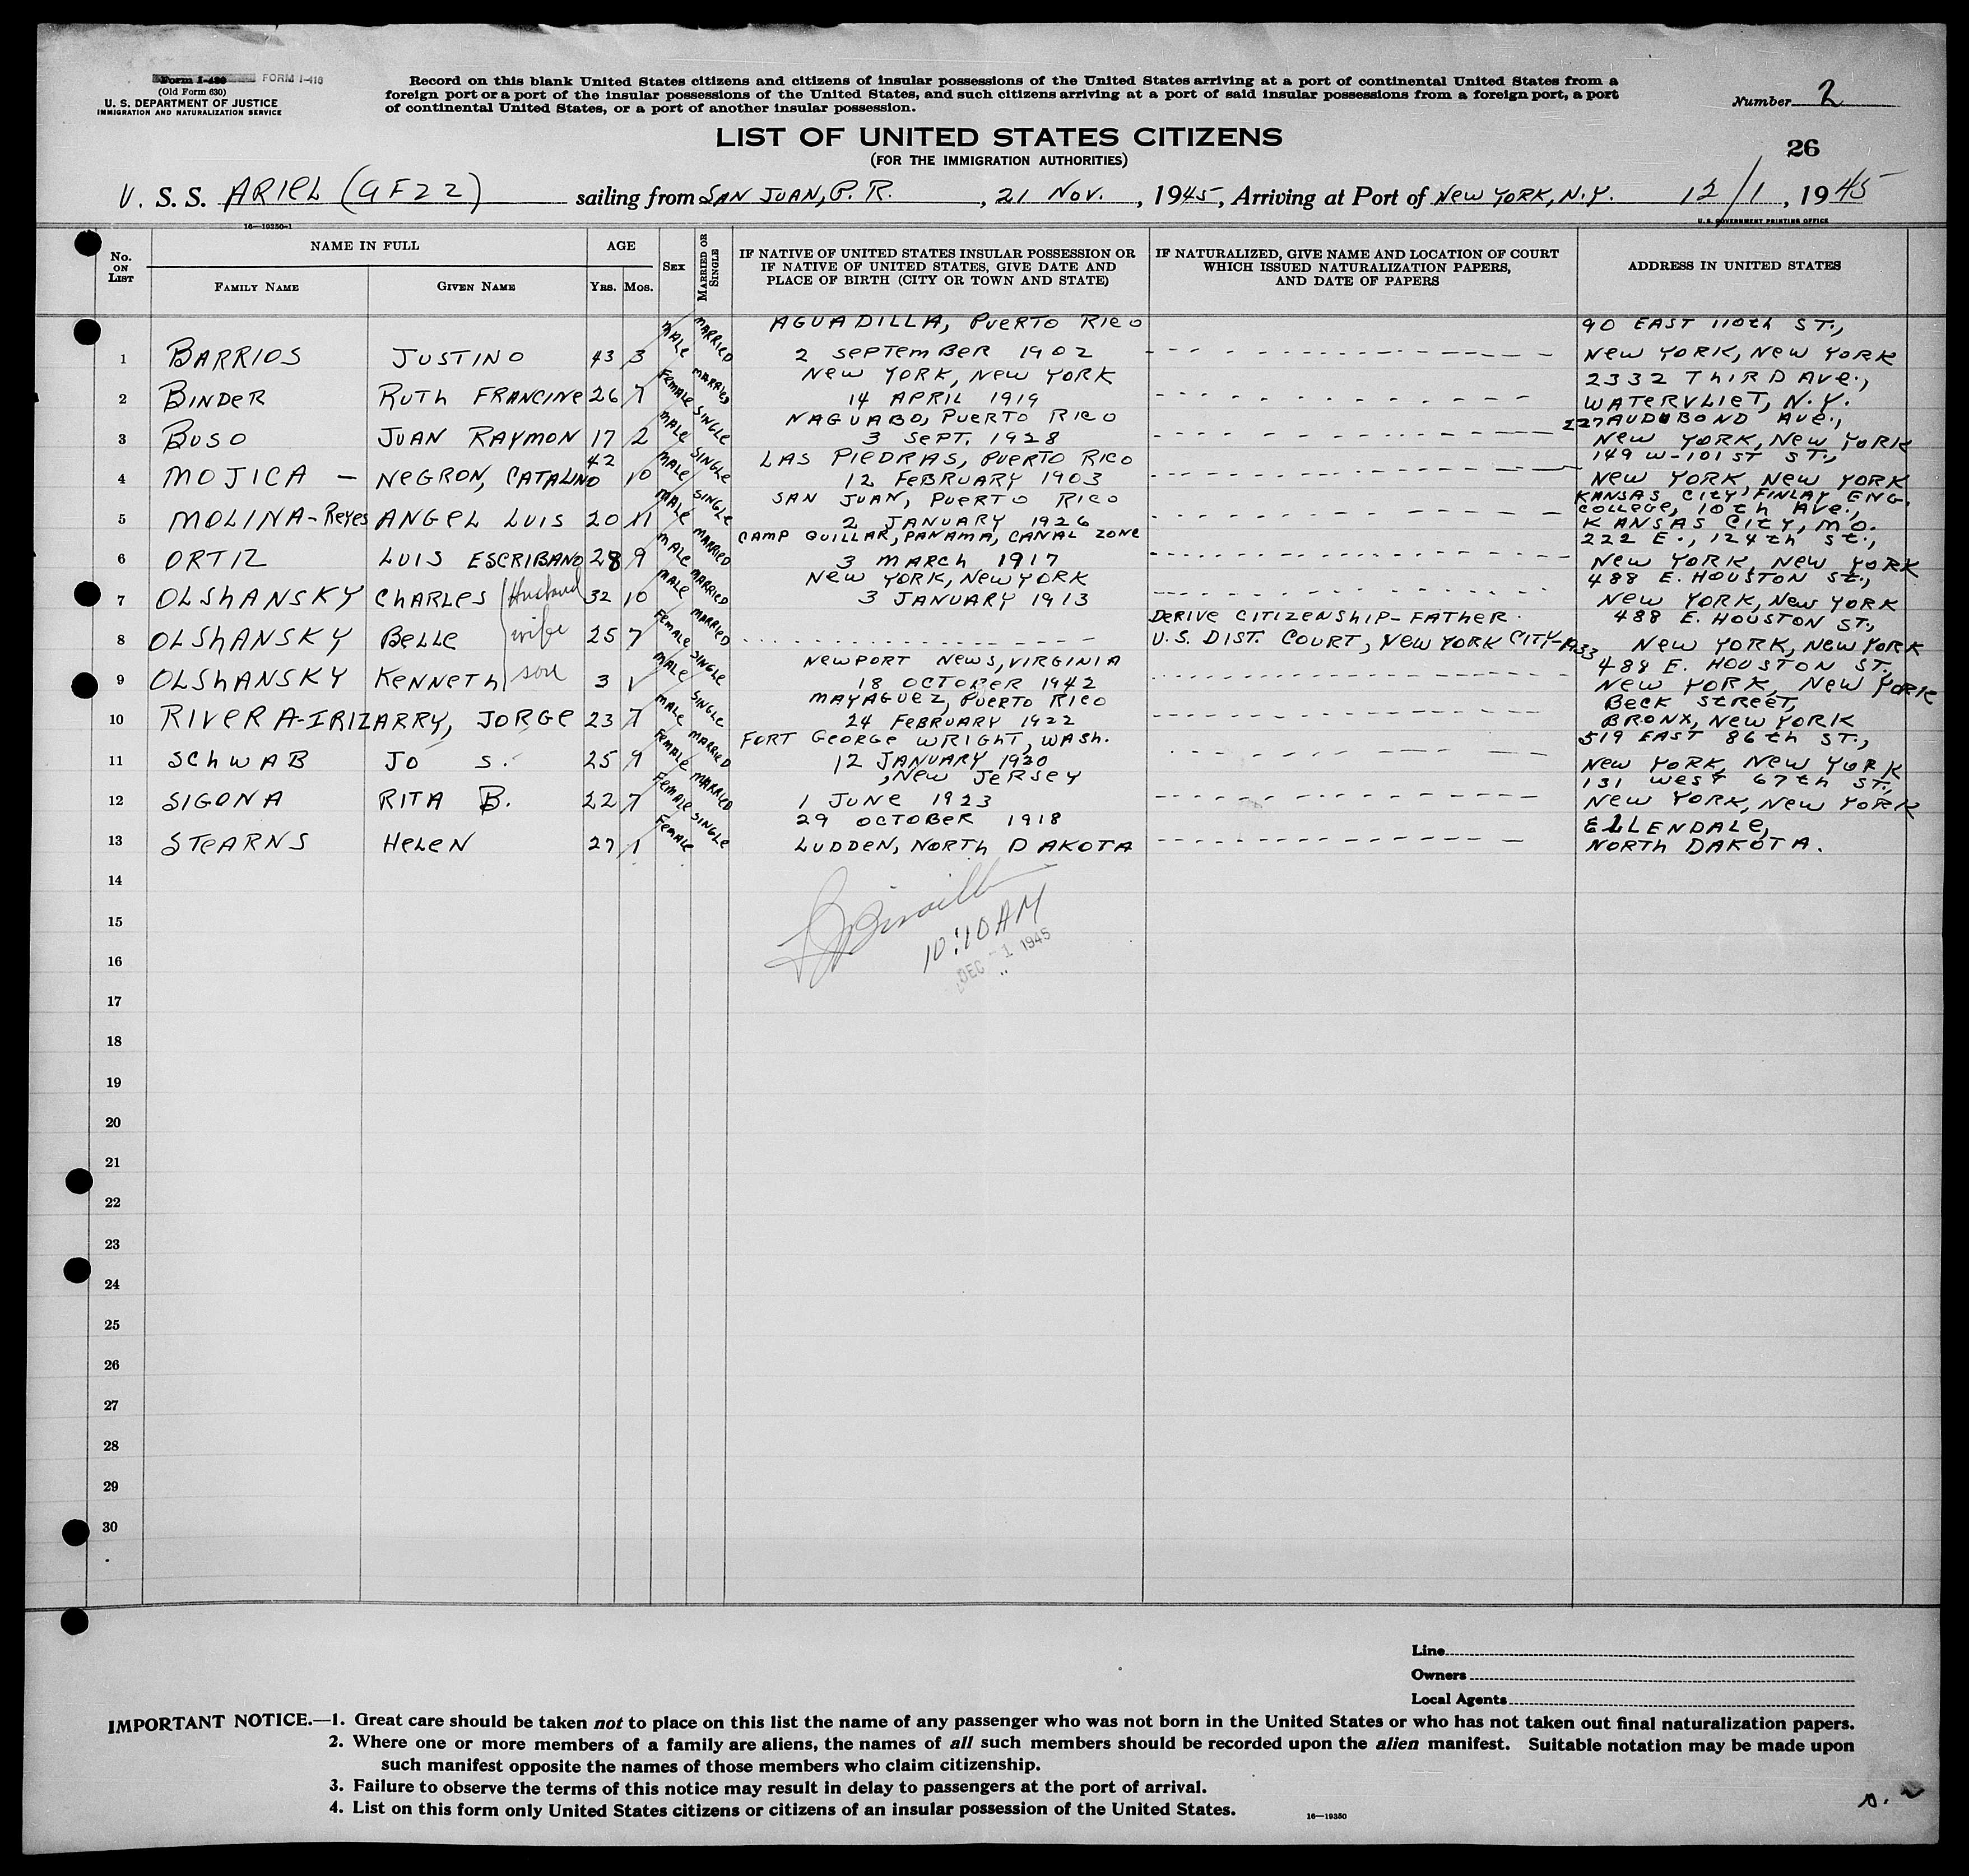 Form I-430 FORM I-418
(Old Form 630)
U. S. DEPARTMENT OF JUSTICE
IMMIGRATION AND NATURALIZATION SERVICE
Record on this blank United States citizens and citizens of insular possessions of the United States arriving at a port of continental United States from a
foreign port or a port of the insular possessions of the United States, and such citizens arriving at a port of said insular possessions from a foreign port, a port
of continental United States, or a port of another insular possession.
Number 2
LIST OF UNITED STATES CITIZENS
(FOR THE IMMIGRATION AUTHORITIES)
26
U. S. S. ARIEL (GF22) sailing from SAN JUAN, P. R., 21 NOV., 1945, Arriving at Port of NEW YORK, N.Y. 12/1, 1945
16—19250-1
U. S. GOVERNMENT PRINTING OFFICE
No. ON LIST
NAME IN FULL
FAMILY NAME GIVEN NAME
AGE
YRS. MOS.
SEX
MARRIED OR SINGLE
IF NATIVE OF UNITED STATES INSULAR POSSESSION OR
IF NATIVE OF UNITED STATES, GIVE DATE AND
PLACE OF BIRTH (CITY OR TOWN AND STATE)
IF NATURALIZED, GIVE NAME AND LOCATION OF COURT
WHICH ISSUED NATURALIZATION PAPERS,
AND DATE OF PAPERS
ADDRESS IN UNITED STATES
AGUADILLA, PUERTO RICO 90 EAST 110th ST.,
1 BARRIOS JUSTINO 43 3 MALE MARRIED 2 SEPTEMBER 1902 NEW YORK, NEW YORK
NEW YORK, NEW YORK 2332 THIRD AVE.,
2 BINDER RUTH FRANCINE 26 7 FEMALE MARRIED 14 APRIL 1919 WATERVLIET, N.Y.
NAGUABO, PUERTO RICO 227 AUDUBOND AVE.,
3 BUSO JUAN RAYMON 17 2 MALE SINGLE 3 SEPT. 1928 NEW YORK, NEW YORK
LAS PIEDRAS, PUERTO RICO 149 W-101 ST ST.,
4 MOJICA - NEGRON, CATALINO 42 10 MALE SINGLE 12 FEBRUARY 1903 NEW YORK, NEW YORK
SAN JUAN, PUERTO RICO KANSAS CITY, FINLAY ENG.
COLLEGE, 10th AVE.,
5 MOLINA-REYES ANGEL LUIS 20 11 MALE SINGLE 2 JANUARY 1926 KANSAS CITY, MO.
CAMP QUILLAR, PANAMA, CANAL ZONE 222 E., 124th ST.,
6 ORTIZ LUIS ESCRIBANO 28 9 MALE MARRIED 3 MARCH 1917 NEW YORK, NEW YORK
NEW YORK, NEW YORK 488 E. HOUSTON ST.,
7 OLSHANSKY CHARLES Husband 32 10 MALE MARRIED 3 JANUARY 1913 NEW YORK, NEW YORK
DERIVE CITIZENSHIP-FATHER. 488 E. HOUSTON ST.,
8 OLSHANSKY BELLE wife 25 7 FEMALE MARRIED U.S. DIST. COURT, NEW YORK CITY-1933 NEW YORK, NEW YORK
NEWPORT NEWS, VIRGINIA 488 E. HOUSTON ST.,
9 OLSHANSKY KENNETH son 3 1 MALE SINGLE 18 OCTOBER 1942 NEW YORK, NEW YORK
MAYAGUEZ, PUERTO RICO BECK STREET,
10 RIVERA-IRIZARRY, JORGE 23 7 MALE SINGLE 24 FEBRUARY 1922 BRONX, NEW YORK
FORT GEORGE WRIGHT, WASH. 519 EAST 86th ST.,
11 SCHWAB JO S. 25 9 FEMALE MARRIED 12 JANUARY 1920 NEW YORK, NEW YORK
, NEW JERSEY 131 WEST 67th ST.,
12 SIGONA RITA B. 22 7 FEMALE MARRIED 1 JUNE 1923 NEW YORK, NEW YORK
29 OCTOBER 1918 ELLENDALE,
13 STEARNS HELEN 27 1 FEMALE SINGLE LUDDEN, NORTH DAKOTA NORTH DAKOTA.
14
15
10:10 AM
DEC - 1 1945
16
17
18
19
20
21
22
23
24
25
26
27
28
29
30
Line
Owners
Local Agents
IMPORTANT NOTICE.—1. Great care should be taken not to place on this list the name of any passenger who was not born in the United States or who has not taken out final naturalization papers.
2. Where one or more members of a family are aliens, the names of all such members should be recorded upon the alien manifest. Suitable notation may be made upon
such manifest opposite the names of those members who claim citizenship.
3. Failure to observe the terms of this notice may result in delay to passengers at the port of arrival.
4. List on this form only United States citizens or citizens of an insular possession of the United States.
16—19350